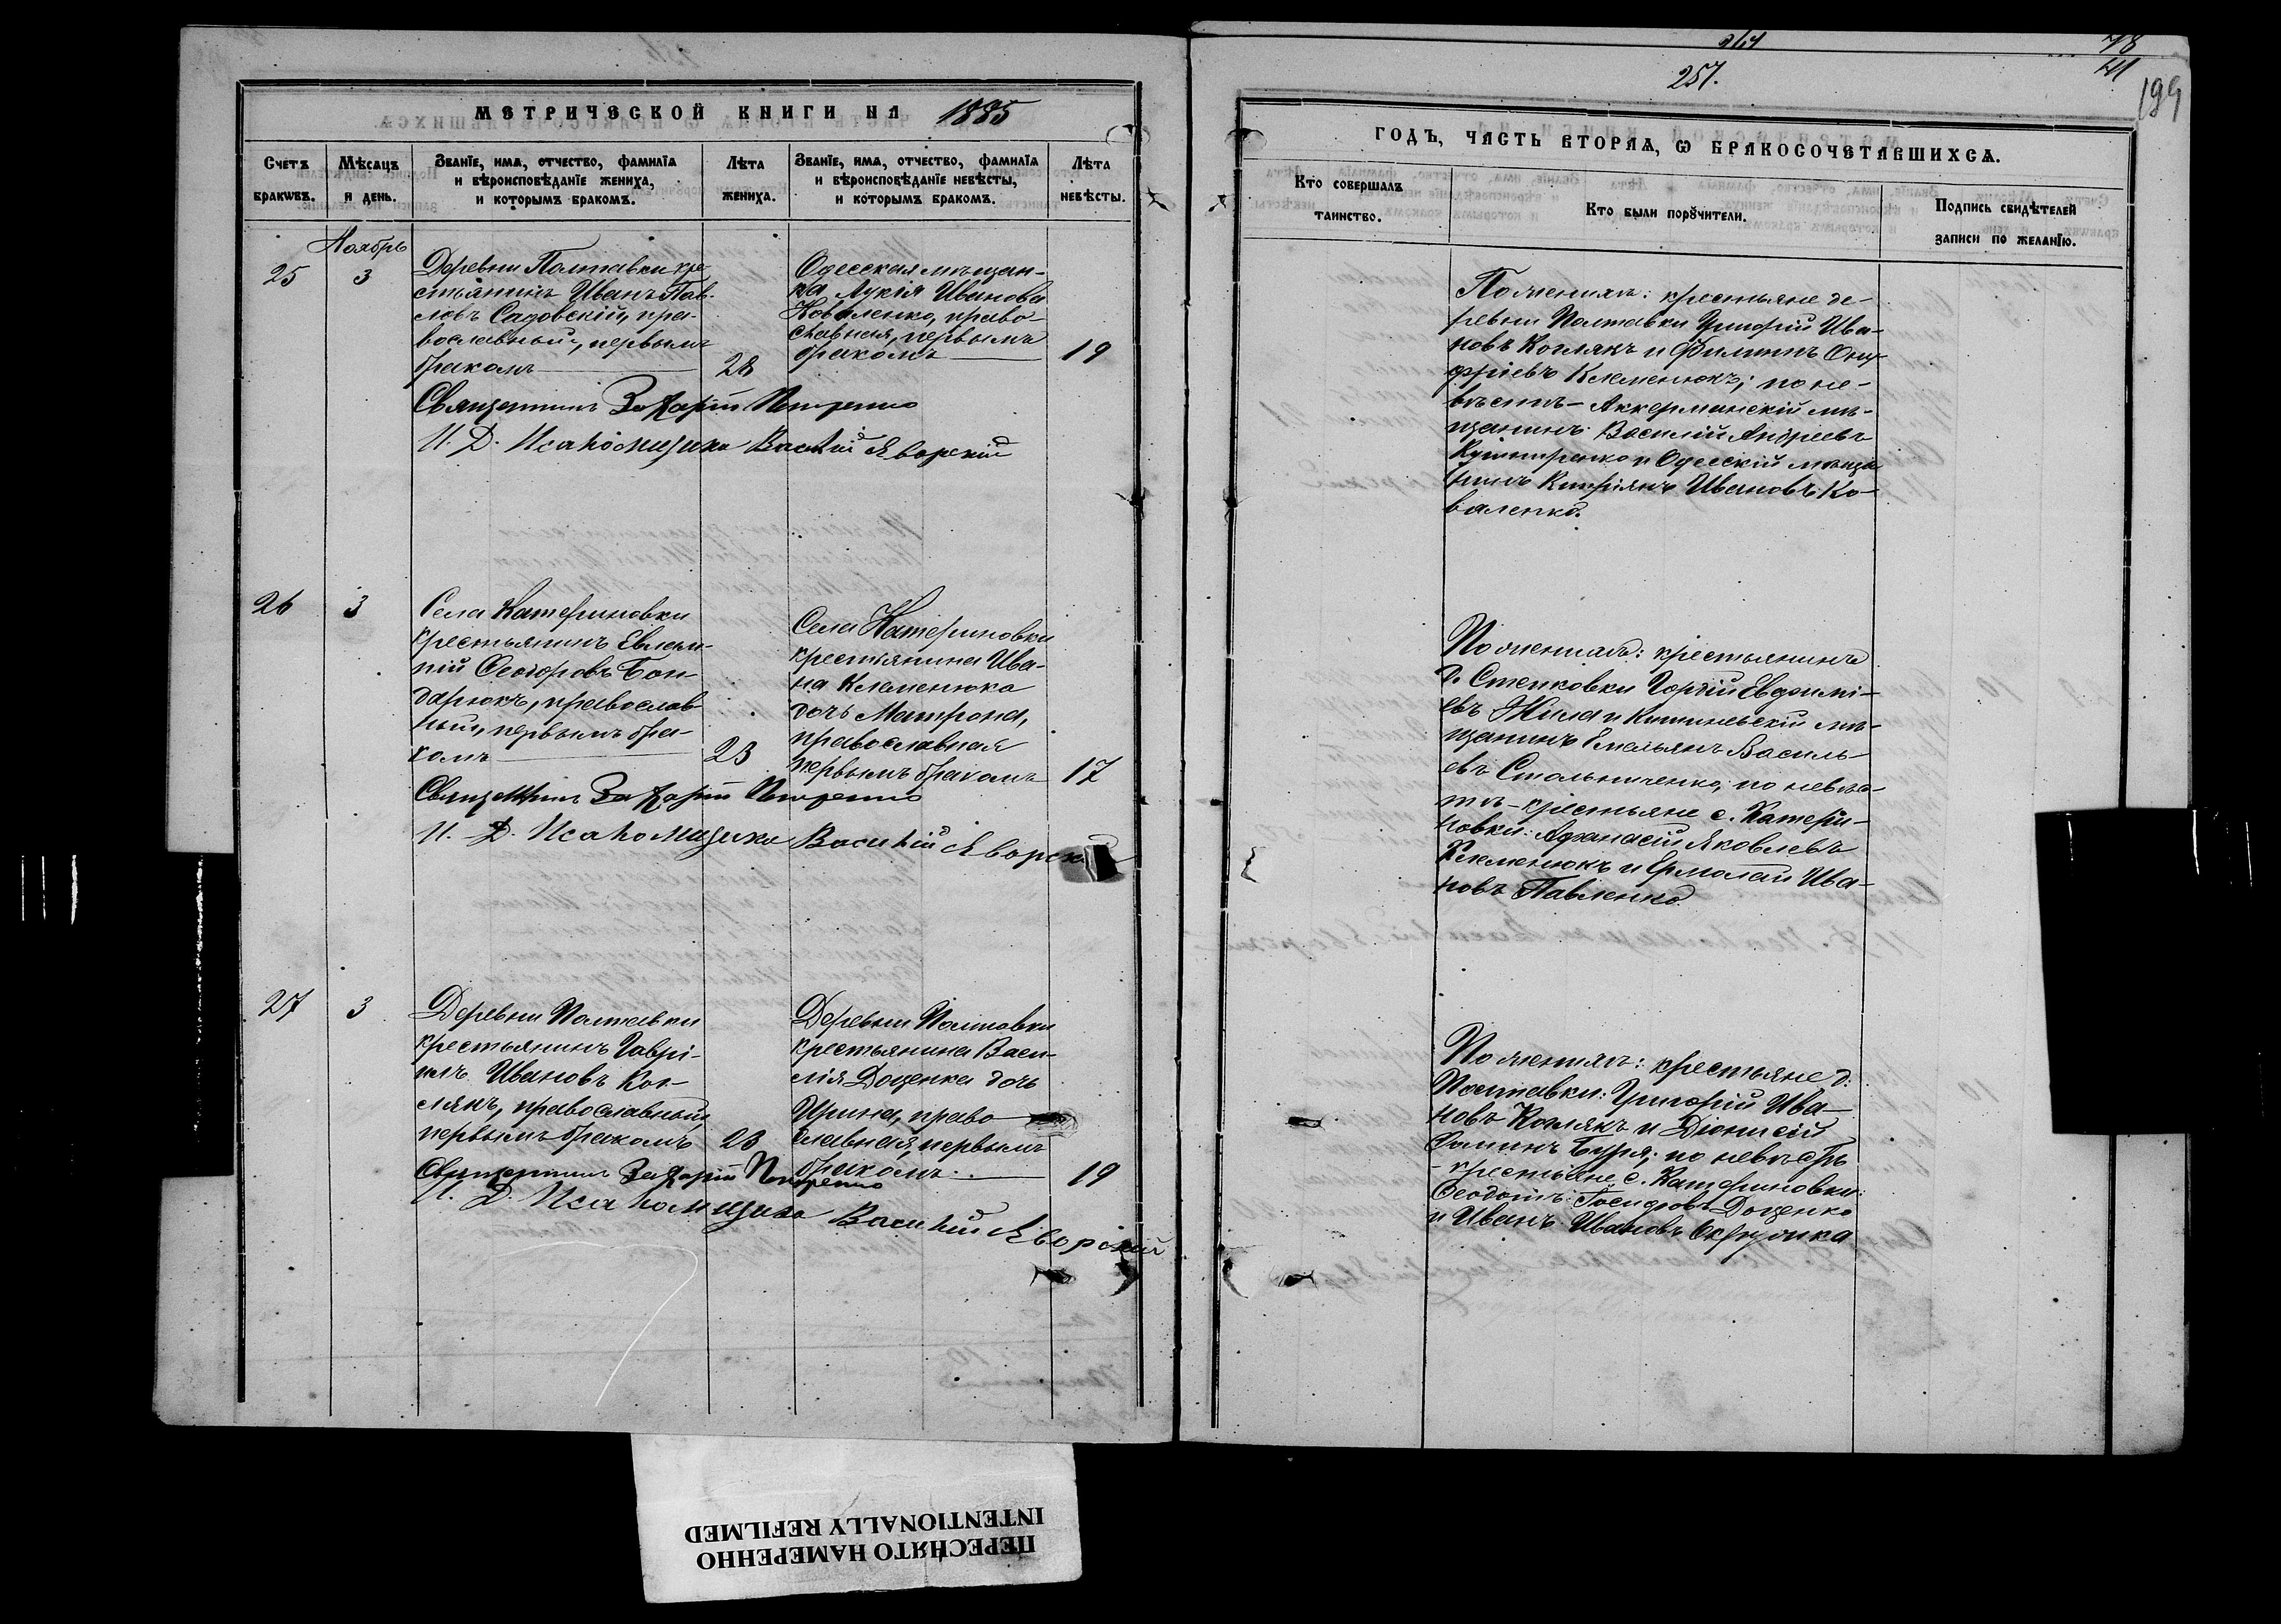 МЕТРИЧЕСКОЙ КНИГИ НА 1885
Счетъ браковъ.
Мѣсяцъ и день.
Званіе, имя, отчество, фамилія
и вѣроисповѣданіе жениха,
и которымъ бракомъ.
Лѣта
жениха.
Званіе, имя, отчество, фамилія
и вѣроисповѣданіе невѣсты,
и которымъ бракомъ.
Лѣта
невѣсты.
Ноябрь
25
3
Деревни Полтавки кре-
стьянинъ Иванъ Пав-
ловъ Садовскій, пра-
вославный, первымъ
бракомъ
28
Одесская мѣщан-
ка Лукія Иванова
Коваленко, право-
славная, первымъ
бракомъ
19
Священникъ Захарій
И. Д. Псаломщика Василій Яворскій
26
3
Села Катериновки
крестьянинъ Евлам-
пій Ѳеодоровъ Бон-
дарюкъ, православ-
ный, первымъ бра-
комъ
23
Села Катериновки
крестьянина Ива-
на Клеменюка
дочь Матрона,
православная
первымъ бракомъ
17
Священникъ Захарій
И. Д. Псаломщика Василій Яворскій
27
3
Деревни Полтавки
крестьянинъ Гаврі-
илъ Ивановъ Ког-
лякъ, православный,
первымъ бракомъ
23
Деревни Полтавки
крестьянина Васи-
лія Доценка дочь
Ирина, право-
славная, первымъ
бракомъ.
19
Священникъ Захарій
И. Д. Псаломщика Василій Яворскій
264
78
257.
41
199
ГОДЪ, ЧАСТЬ ВТОРАЯ, Ѡ БРАКОСОЧЕТАВШИХСЯ.
Кто совершалъ
таинство.
Кто были поручители.
Подпись свидѣтелей
записи по желанію.
По женихѣ: крестьяне де-
ревни Полтавки Григорій Ива-
новъ Коглякъ и Филиппъ Ону-
фріевъ Клеменюкъ; по не-
вѣстѣ - Аккерманскій мѣ-
щанинъ Василій Андреевъ
и Одесскій мѣща-
нинъ Кипріянъ Ивановъ Ко-
валенко.
По женихѣ: крестьянинъ
д. Степковки Гордій Евфимі-
евъ Жила и Кишиневскій мѣ-
щанинъ Емельянъ Василь-
евъ Стольниченко; по невѣс-
тѣ - крестьяне с. Катери-
новки: Афанасій Яковлевъ
Клеменюкъ и Ермолай Ива-
новъ Павленко
По женихѣ: крестьяне д.
Полтавки: Григорій Ива-
новъ Коглякъ и Діонисій
Фоминъ Буря; по невѣстѣ
- крестьяне с. Катериновки:
Ѳеодотъ Іосифовъ Доценко
и Иванъ Ивановъ
ПЕРЕСНЯТО НАМЕРЕННО
INTENTIONALLY REFILMED